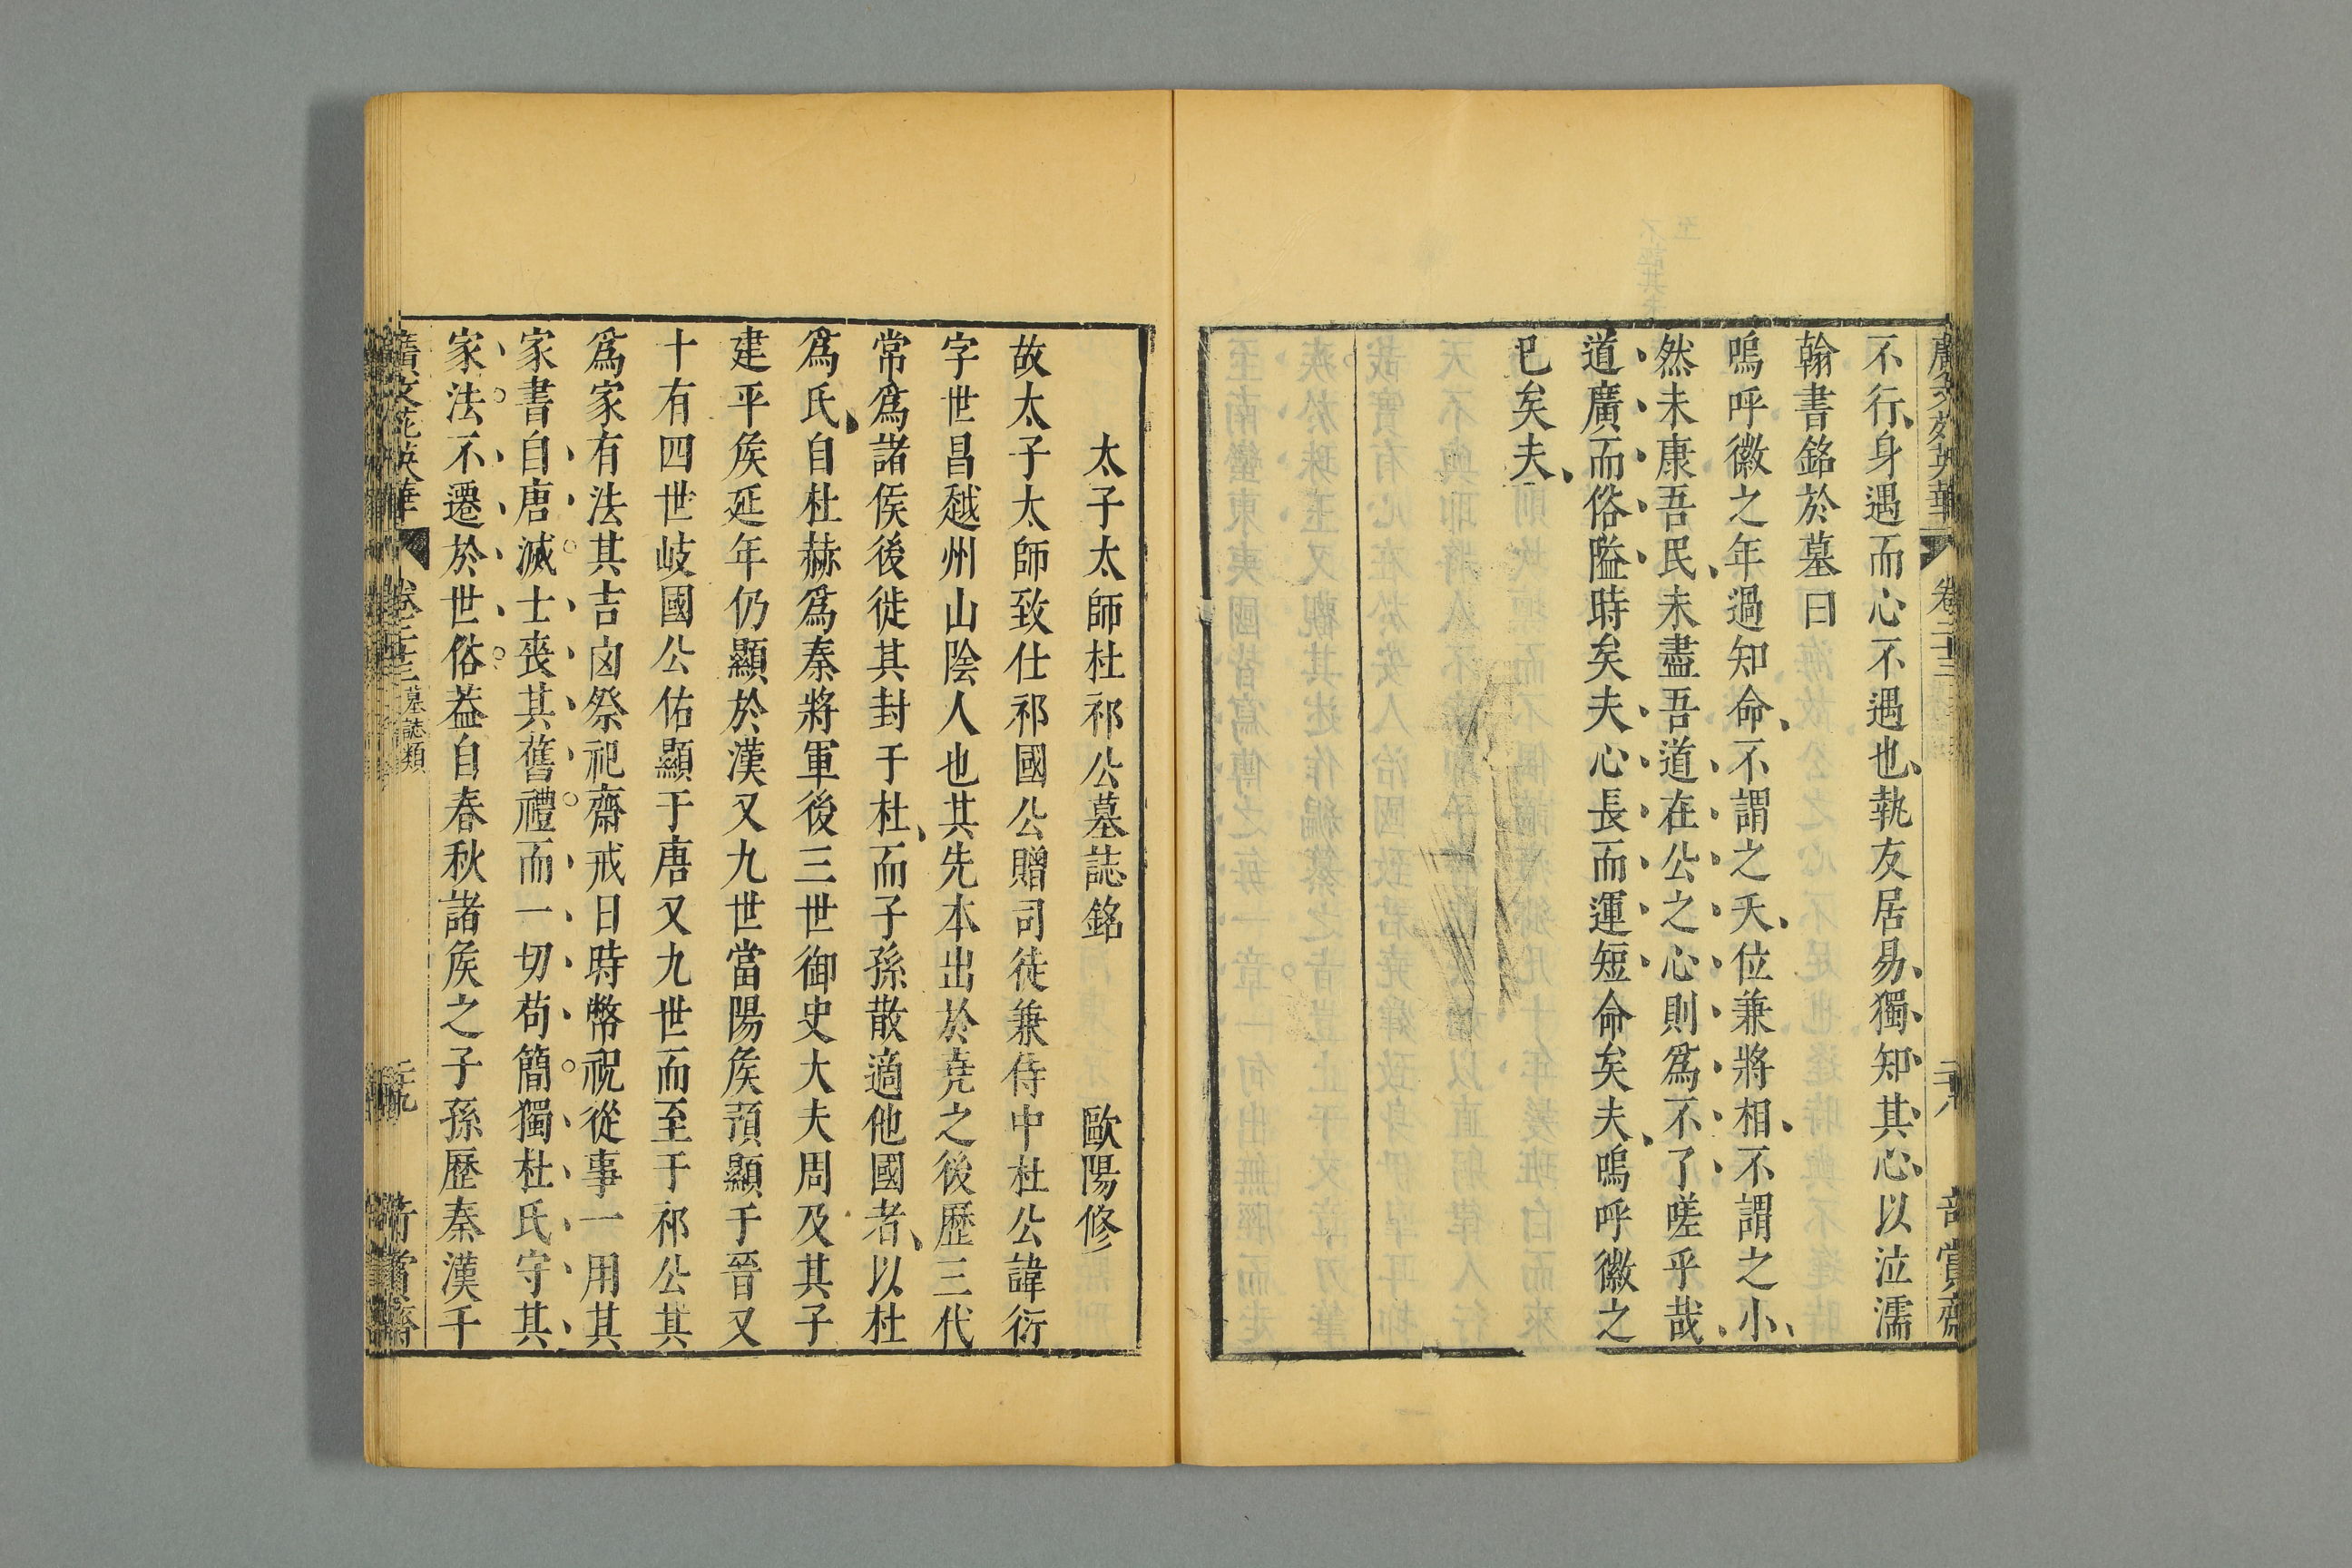 不行身遇而心不遇也執友居易獨知其心以泣濡
翰書銘於墓曰
嗚呼徽之年過知命不謂之夭位兼將相不謂之小
然未康吾民未盡吾道在公之心則爲不了嗟乎哉
道廣而俗隘時矣夫心長而運短命矣夫嗚呼徽之
已矣夫
太子太師杜祁公墓誌銘 歐陽修
故太子太師致仕祁國公贈司徒兼侍中杜公諱衍
字世昌越州山陰人也其先本出於堯之後歷三代
常爲諸侯後徙其封于杜而子孫散適他國者以杜
爲氏自杜赫爲秦將軍後三世御史大夫周及其子
建平矦延年仍顯於漢又九世當陽矦預顯于晉又
十有四世岐國公佑顯于唐又九世而至于祁公其
爲家有法其吉凶祭祀齋戒日時幣祝從事一用其
家書自唐滅士喪其舊禮而一切苟簡獨杜氏守其
家法不遷於世俗葢自春秋諸矦之子孫歷秦漢千
廣文苑英華 卷二十三 墓誌類